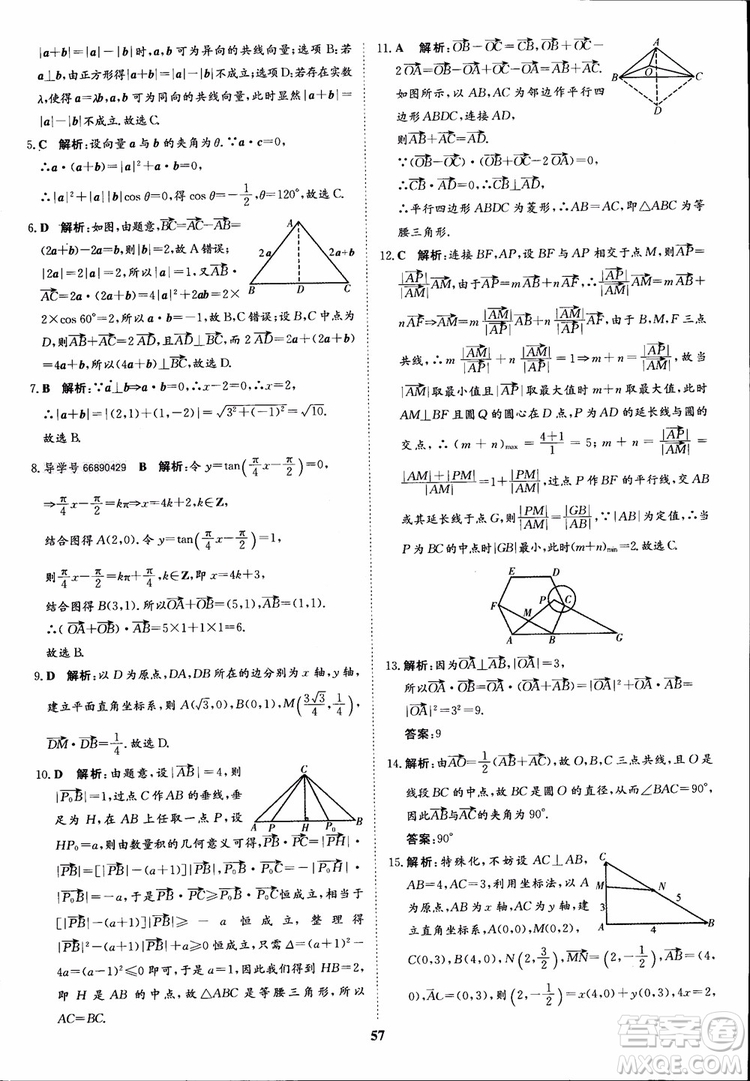 |a+b|=|a|-|b|时，a，b 可为异向的共线向量；选项 B：若
a⊥b，由正方形得|a+b|=|a|-|b|不成立；选项 D：若存在实数
λ，使得 a=λb，a，b 可为同向的共线向量，此时显然|a+b|=
|a|-|b|不成立.故选 C.
5.C 解析：设向量 a 与 b 的夹角为 θ.∵a·c=0，
∴a·(a+b)=|a|²+a·b=0，
∴|a|²+|a||b|cos θ=0，得 cos θ=-1/2，θ=120°，故选 C.
6. D 解析：如图，由题意，BC=AC-AB=
(2a+b)-2a=b，则|b|=2，故 A 错误；
|2a|=2|a|=2，所以|a|=1，又 AB·
AC=2a·(2a+b)=4|a|²+2a·b=2×
2×cos 60°=2，所以 a·b=-1，故 B，C 错误；设 B，C 中点为
D，则 AB+AC=2 AD，且 AD⊥BC，而 AB+AC=2a+(2a+b)=
4a+b，所以(4a+b)⊥BC，故选 D.
A
2a
2a+b
B D C
7. B 解析：∵a⊥b⇒a·b=0，∴x-2=0⇒x=2，
∴|a+b|=|(2,1)+(1,-2)|=√(3²+(-1)²)=√10.
故选 B.
8. 导学号 66890429 B 解析：令 y=tan(π/4 x-π/2)=0，
⇒π/4 x-π/2=kπ⇒x=4k+2，k∈Z，
结合图得 A(2,0). 令 y=tan(π/4 x-π/2)=1，
则π/4 x-π/2=π/4+kπ，k∈Z⇒x=4k+3，
结合图得 B(3,1). 所以 OA+OB=(5,1)，AB=(1,1)，
∴(OA+OB)·AB=5×1+1×1=6.
故选 B.
9. D 解析：以 D 为原点，DA，DB 所在的边分别为 x 轴，y 轴，
建立平面直角坐标系，则 A(√3,0)，B(0,1)，M(3√3/4,1/4)，
DM·DB=1/4.故选 D.
10. D 解析：由题意，设|AB|=4，则
|P₀B|=1，过点 C 作 AB 的垂线，垂
足为 H，在 AB 上任取一点 P，设
HP₀=a，则由数量积的几何意义可得，PB·PC=|PH|·
|PB|=|PB|-(a+1)||PB|，P₀B·P₀C=-|P₀H|·
|P₀B|=-a，于是 PB·PC≥P₀B·P₀C 恒成立，相当于
[|PB|-(a+1)]|PB|≥-a 恒成立，整理得
|PB|²-(a+1)|PB|+a≥0 恒成立，只需 Δ=(a+1)²-
4a=(a-1)²≤0 即可，于是 a=1，因此我们得到 HB=2，
即 H 是 AB 的中点，故△ABC 是等腰三角形，所以
AC=BC.
C
A P H P₀ B
11. A 解析：OB-OC=CB，OB+OC-
2OA=(OB-OA)+(OC-OA)=AB+AC.
如图所示，以 AB，AC 为邻边作平行四
边形 ABDC，对角线交于点 O，
则 AB+AC=AD.
∵(OB-OC)·(OB+OC-2OA)=0，
∴CB·AD=0，∴CB⊥AD.
∴平行四边形 ABDC 为菱形，∴AB=AC，即△ABC 是等
腰三角形.故选 A.
A
B O C
D
12. C 解析：连接 BF，AP，设 BF 与 AP 相交于点 M，则 AP=
|AP|/|AM| AM，由于 AP=mAB+nAF，∴|AP|/|AM| AM=mAB+
nAF⇒AM=m |AM|/|AP| AB+n |AM|/|AP| AF，由于 B，M，F 三点
共线，∴m |AM|/|AP|+n |AM|/|AP|=1⇒m+n=|AP|/|AM|，故
|AM|取最小值且|AP|取最大值时，m+n 取最大值，此时
AM⊥BF 且圆 Q 的圆心在点 D，点 P 为 AD 的延长线与圆的
交点，∴(m+n)max=(4+1)/1=5；由于 m+n=|AP|/|AM|=
(|AM|+|PM|)/|AM|=1+|PM|/|AM|，过点 P 作 BF 的平行线，交 AB
或其延长线于点 G，则|PM|/|AM|=|GB|/|AB|=|GB|/1，∵AB=1，故当
P 为 BC 的中点时|GB|最小，∴(m+n)min=2.故选 C.
E D
F P C
M
A B G
13. 解析：因为 OA⊥AB，|OA|=3，
所以 OA·OB=OA·(OA+AB)=|OA|²+OA·AB=
|OA|²=3²=9.
答案：9
14. 解析：由 AO=1/2(AB+AC)，故 O，B，C 三点共线，且 O 是
线段 BC 中点，故 BC 是圆 O 的直径，从而∠BAC=90°，
因此 AB 与 AC 的夹角为 90°.
答案：90°
15. 解析：特殊化，不妨设 AC⊥AB，AB=
4，AC=3，利用坐标法，以 A
为原点，AB 为 x 轴，AC 为 y 轴，建
立直角坐标系，A(0,0)，B(4,0)，
C(0,3)，M(0,2)，N(2,3/2)，MN=(2,-1/2)，AB=(4,
0)，AC=(0,3)，则(2,-1/2)=x(4,0)+y(0,3)，
C
M N
3 5
A 4 B
57
答案圈
MXQE.COM